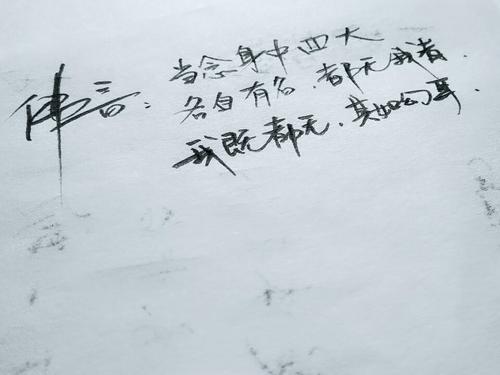 佛言:
当念身中四大
各自有名.都无我者.
我既都无.其如幻耳.